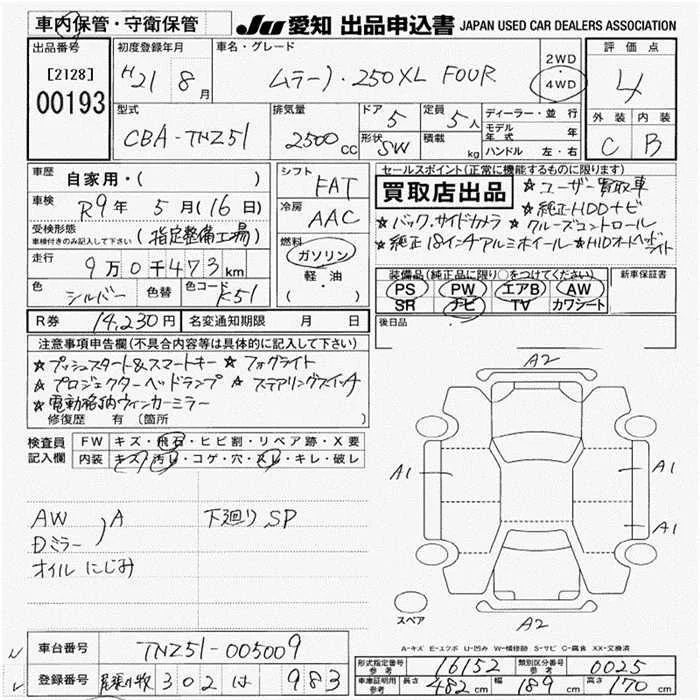 車内保管・守衛保管
JU 愛知 出品申込書 JAPAN USED CAR DEALERS ASSOCIATION
出品番号
[2128]
00193
初度登録年月
H21 8月
車名・グレード
ムラーノ・250XL FOUR
2WD
・
4WD
評価点
4
型式
CBA-TNZ51
排気量
2500cc
ドア 5
形状 SW
定員 5人
積載 kg
ディーラー・並行
モデル年式 年
ハンドル 左・右
外装 内装
C B
車歴
自家用・( )
車検 R9年 5月(16日)
受検形態 (指定整備工場)
車検付きのみ記入して下さい
走行 9万0千473km
色 シルバー 色替 色コード K51
R券 14,230円 名変通知期限 月 日
シフト FAT
冷房 AAC
燃料
ガソリン
軽・油
( )
セールスポイント(正常に機能するものに限ります)
買取店出品 ☆ユーザー買取車
☆純正HDDナビ
★バック・サイドカメラ ☆クルーズコントロール
★純正18インチアルミホイール ★HIDオートヘッドライト
装備品(純正品に限り○をつけてください)
PS PW エアB AW
SR ナビ TV カワシート
新車保証書
後日品
注意事項申告欄(不具合内容等は具体的に記入して下さい)
☆プッシュスタート&スマートキー ☆フォグライト
★プロジェクターヘッドランプ ☆ステアリングスイッチ
★電動格納ウィンカーミラー
修復歴 有(箇所 )
検査員記入欄
FW キズ・飛石・ヒビ割・リペア跡・X要
内装 キズ・汚レ・コゲ・穴・スレ・キレ・破レ
AW
Dミラー )A
オイルにじみ
下廻りSP
A2
A1
A1
A1
A2
スペア
A-キズ E-エクボ U-凹み W-補修跡 S-サビ C-腐食 XX-交換済
車台番号 TNZ51-005009
登録番号 尾張小牧 302 は 983
形式指定番号 参考 16152 類別区分番号 参考 0025
車庫証明用 参考 長さ 482cm 幅 189cm 高さ 170cm